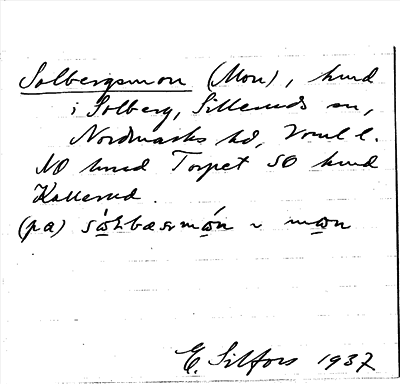 Solbergsmon (Mon), hmd
i Solberg, Silleruds sn,
Nordmarks hd, Vrml l.
NO hmd Torpet SO hmd
Kallerud.
(pa) 
E. Silfors 1937